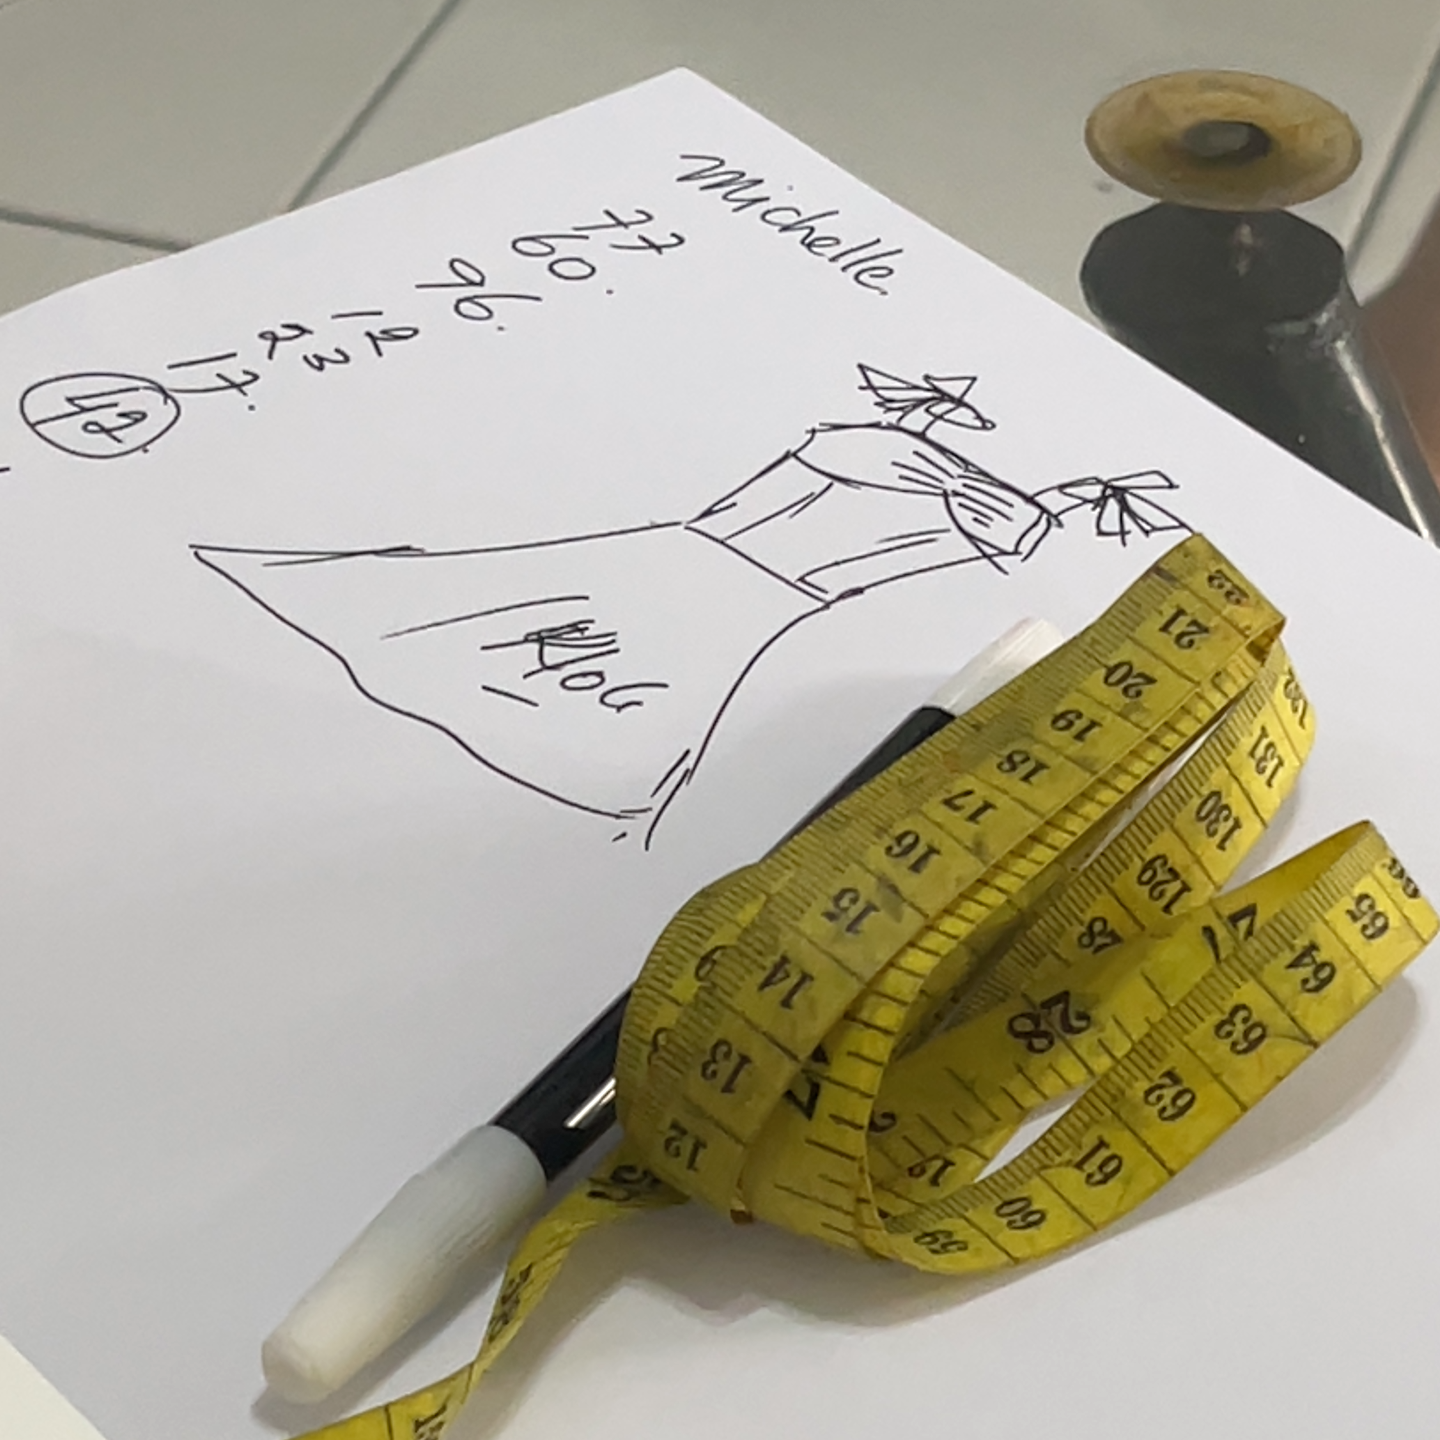 michelle.
77
60.
96.
12
23
17.
42.
22
21
20
19
18
17
16
15
14
13
12
9
8
131
130
129
28
65
64
63
62
61
60
59